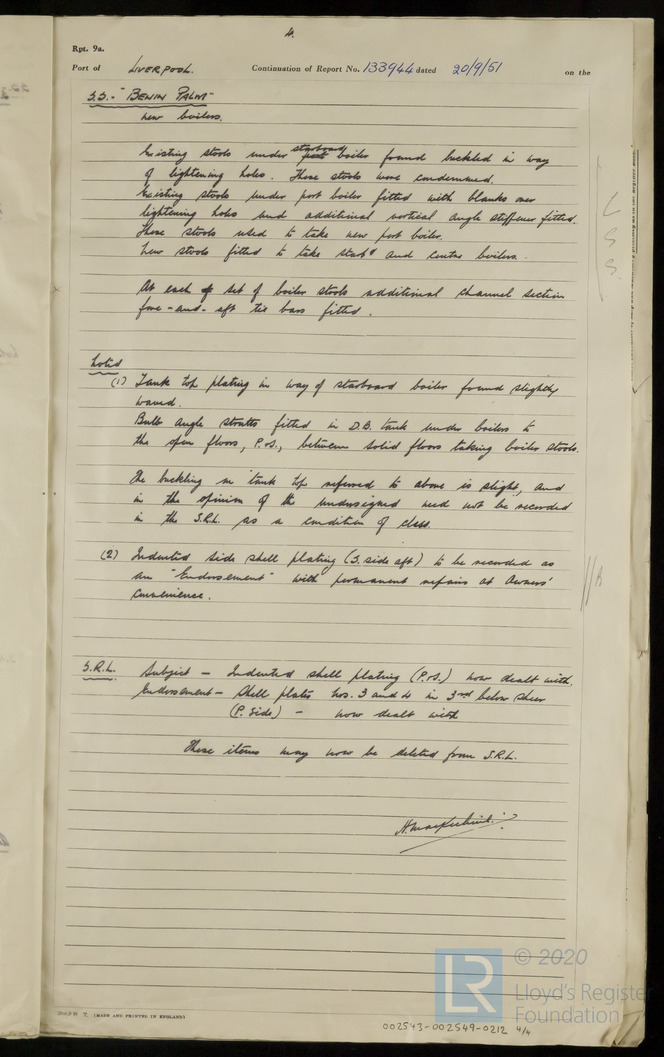 4.
Rpt. 9a.
Port of LIVERPOOL. Continuation of Report No. 133944 dated 20/9/51 on the
S.S. - "BENIN PALM"
New boilers.
Existing stools under starboard port boiler found buckled in way
of lightening holes. These stools were condemned.
Existing stools under port boiler fitted with blanks over
lightening holes and additional vertical angle stiffener fitted.
These stools used to take new port boiler.
New stools fitted to take starbd and centre boilers.
At each of set of boiler stools additional channel section
fore-and-aft tie bars fitted.
Noted
(1) Tank top plating in way of starboard boiler found slightly
waved.
Bulb angle struts fitted in D.B. tank under boilers to
the open floors, P.&S., between solid floors taking boiler stools.
The buckling in tank top referred to above is slight, and
in the opinion of the undersigned need not be recorded
in the S.R.L. as a condition of class.
(2) Indented side shell plating (S. side aft) to be recorded as
an "Endorsement" with permanent repairs at Owners'
convenience.
S.R.L. Subject - Indented shell plating (P.&S.) now dealt with.
Endorsement - Shell plates Nos. 3 and 4 in 3rd below sheer
(P. Side) - now dealt with
These items may now be deleted from S.R.L.
T. (MADE AND PRINTED IN ENGLAND)
LR
© 2020
Lloyd's Register
Foundation
002543-002549-0212 4/4